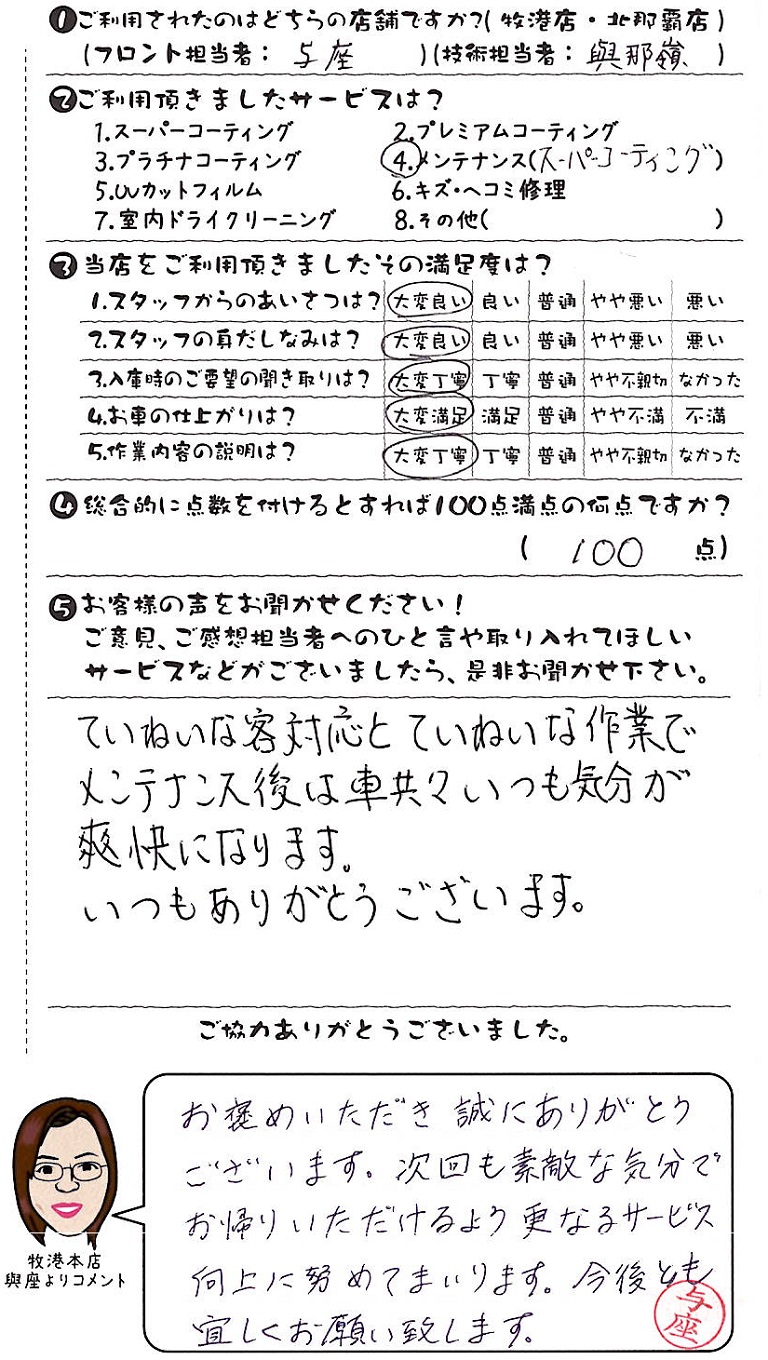 ❶ご利用されたのはどちらの店舗ですか?(牧港店・北那覇店)
(フロント担当者: 与座 )(技術担当者: 與那嶺 )
❷ご利用頂きましたサービスは?
1.スーパーコーティング 2.プレミアムコーティング
3.プラチナコーティング 4.メンテナンス(スーパーコーティング)
5.UVカットフィルム 6.キズ・ヘコミ修理
7.室内ドライクリーニング 8.その他( )
❸当店をご利用頂きましたその満足度は?
1.スタッフからのあいさつは? 大変良い 良い 普通 やや悪い 悪い
2.スタッフの身だしなみは? 大変良い 良い 普通 やや悪い 悪い
3.入庫時のご要望の聞き取りは? 大変丁寧 丁寧 普通 やや不親切 なかった
4.お車の仕上がりは? 大変満足 満足 普通 やや不満 不満
5.作業内容の説明は? 大変丁寧 丁寧 普通 やや不親切 なかった
❹総合的に点数を付けるとすれば100点満点の何点ですか?
( 100 点)
❺お客様の声をお聞かせください!
ご意見、ご感想担当者へのひと言や取り入れてほしい
サービスなどがございましたら、是非お聞かせ下さい。
ていねいな客対応とていねいな作業で
メンテナンス後は車共々いつも気分が
爽快になります。
いつもありがとうございます。
ご協力ありがとうございました。
お褒めいただき誠にありがとう
ございます。次回も素敵な気分で
お帰りいただけるよう更なるサービス
向上に努めてまいります。今後とも
宜しくお願い致します。
与座
牧港本店
與座よりコメント